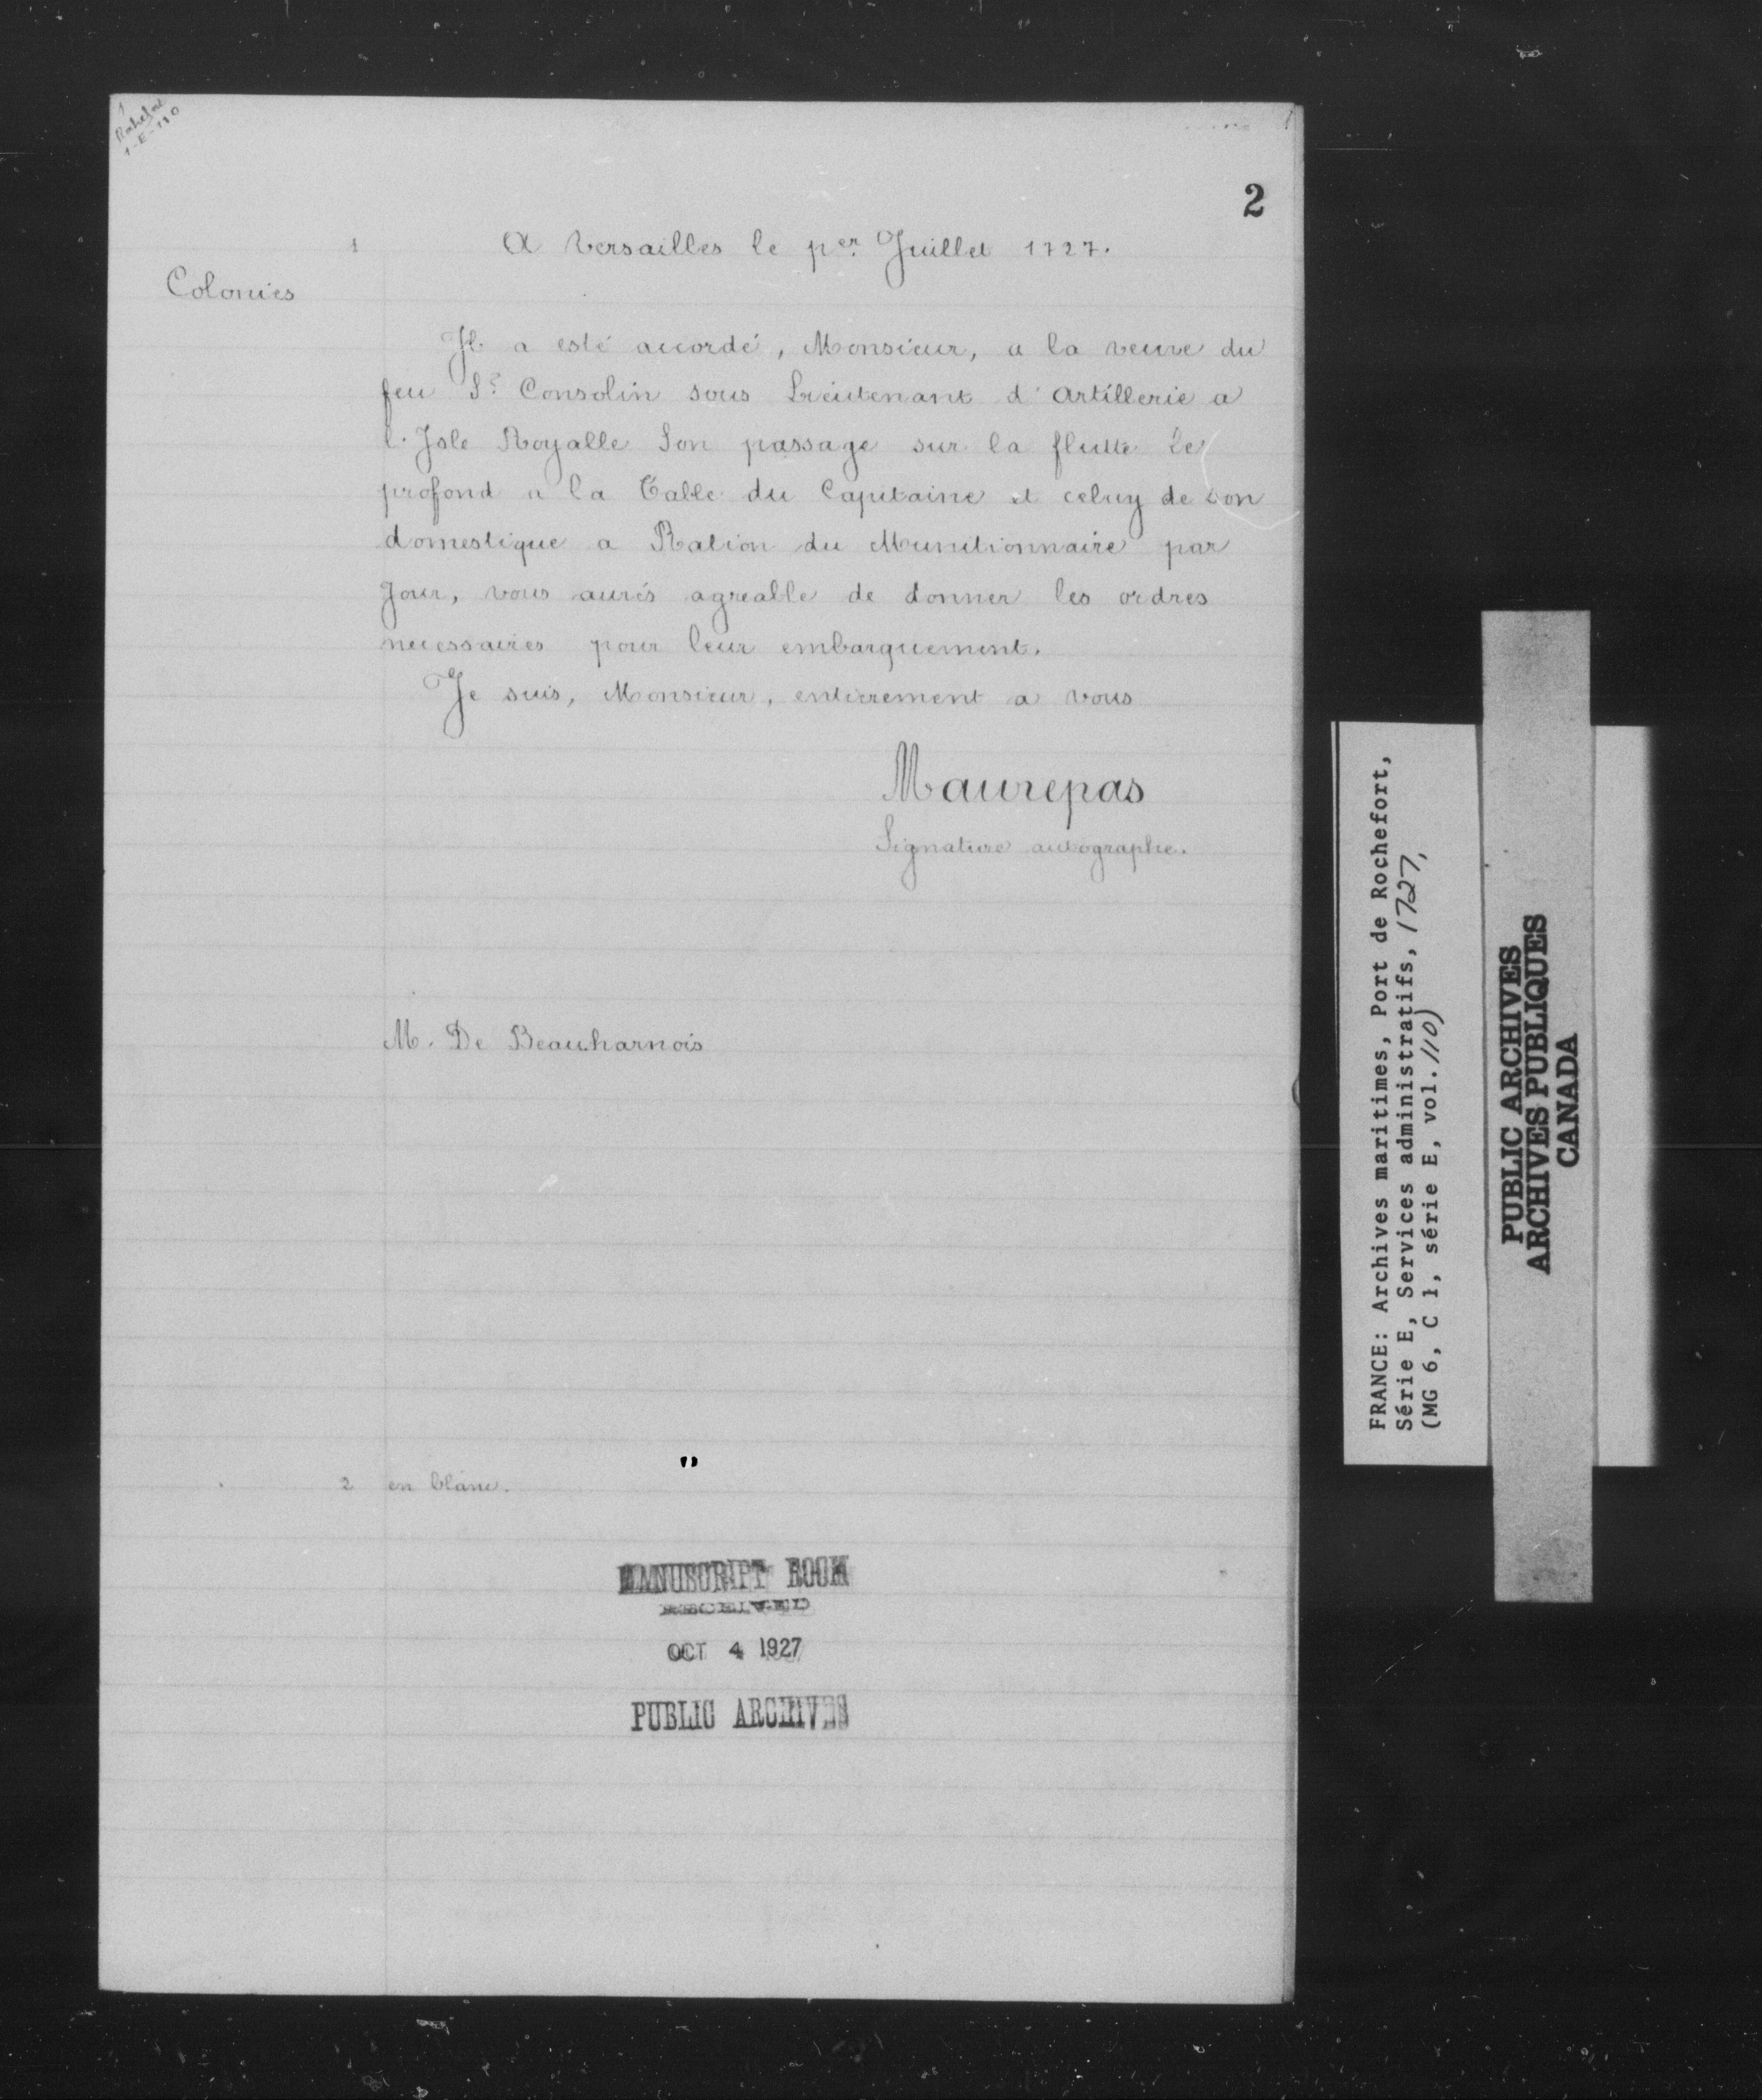 1
Rochefort
1-E-110
2
1 A Versailles le per Juillet 1727.
Colonies
Il a esté accordé, Monsieur, a la veuve du
feu Sr. Consolin sous Lieutenant d'Artillerie a
l'Isle Royalle Son passage sur la flutte Le
profond a la Table du Capitaine et celuy de son
domestique a Ration du Munitionnaire par
Jour, vous aurés agreable de donner les ordres
necessaires pour leur embarquement.
Je suis, Monsieur, entierement a vous
Maurepas
Signature autographe.
M. De Beauharnois
"
2 en blanc.
MANUSCRIPT ROOM
RECEIVED
OCT 4 1927
PUBLIC ARCHIVES
FRANCE: Archives maritimes, Port de Rochefort,
Série E, Services administratifs, 1727,
(MG 6, C 1, série E, vol. 110)
PUBLIC ARCHIVES
ARCHIVES PUBLIQUES
CANADA